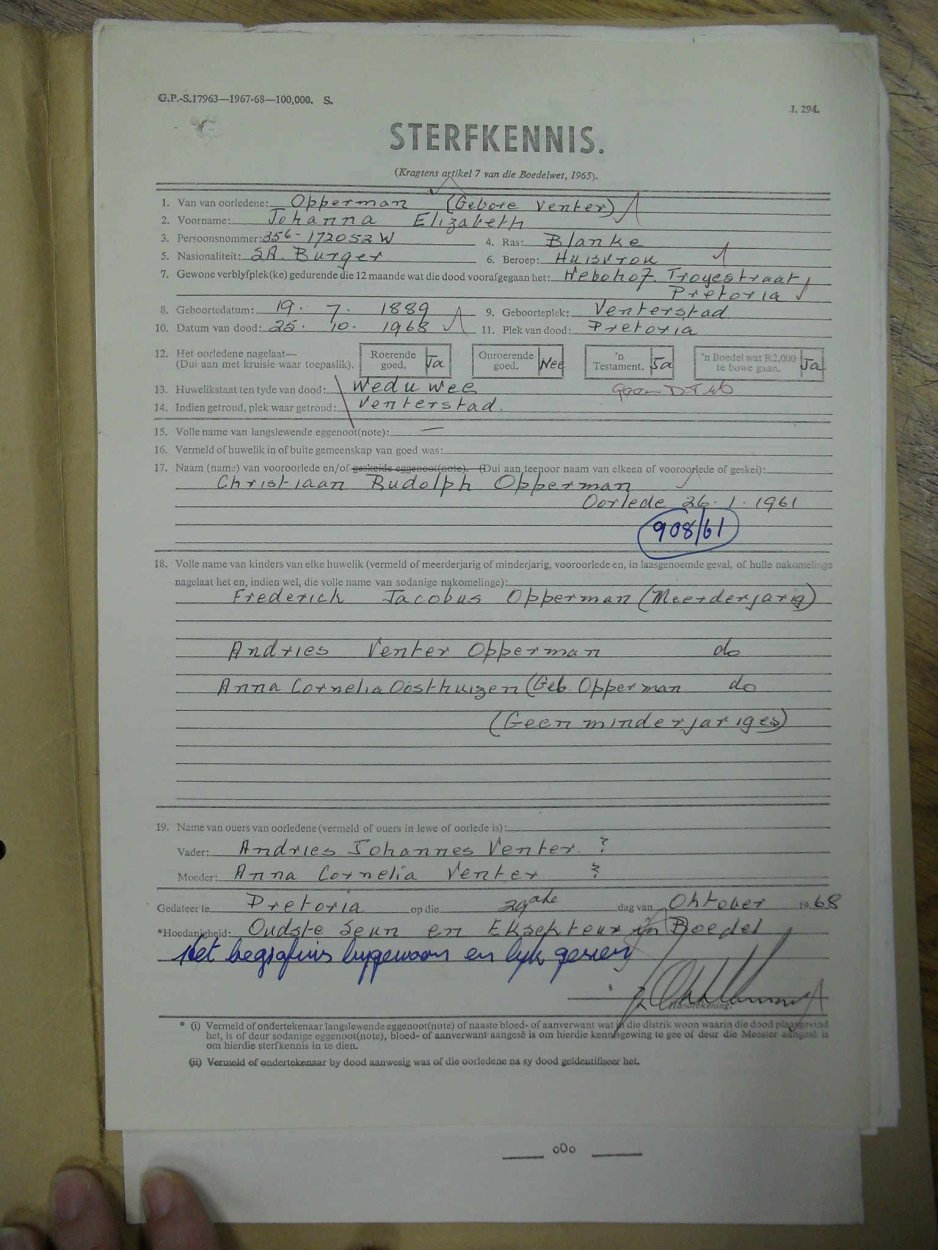 G.P.-S.17963—1967-68—100,000. S.
J. 294.
STERFKENNIS.
(Kragtens artikel 7 van die Boedelwet, 1965).
1. Van van oorledene: Opperman (Gebore Venter)
2. Voorname: Johanna Elizabeth
3. Persoonsnommer: 356-172052W 4. Ras: Blanke
5. Nasionaliteit: S.A. Burger 6. Beroep: Huisvrou
7. Gewone verblyfplek(ke) gedurende die 12 maande wat die dood voorafgegaan het: Hebohof. Troyestraat,
Pretoria
8. Geboortedatum: 19. 7. 1889 9. Geboorteplek: Venterstad
10. Datum van dood: 25. 10. 1968 11. Plek van dood: Pretoria
12. Het oorledene nagelaat— Roerende goed. Ja Onroerende goed. Nee 'n Testament. Ja 'n Boedel wat R2,000 te bowe gaan. Ja
(Dui aan met kruisie waar toepaslik).
13. Huwelikstaat ten tyde van dood: Weduwee
14. Indien getroud, plek waar getroud: Venterstad.
15. Volle name van langslewende eggenoot(note): —
16. Vermeld of huwelik in of buite gemeenskap van goed was:
17. Naam (name) van vooroorlede en/of geskeide eggenoot(note). (Dui aan teenoor naam van elkeen of vooroorlede of geskei):
Christiaan Rudolph Opperman
Oorlede 26.1.1961
908/61
18. Volle name van kinders van elke huwelik (vermeld of meerderjarig of minderjarig, vooroorlede en, in laasgenoemde geval, of hulle nakomelinge
nagelaat het en, indien wel, die volle name van sodanige nakomelinge):
Frederick Jacobus Opperman (Meerderjarig)
Andries Venter Opperman do
Anna Cornelia Oosthuizen (Geb. Opperman do
(Geen minderjariges)
19. Name van ouers van oorledene (vermeld of ouers in lewe of oorlede is):
Vader: Andries Johannes Venter. ?
Moeder: Anna Cornelia Venter ?
Gedateer te Pretoria op die 29ste dag van Oktober 1968
*Hoedanigheid: Oudste seun en Eksekuteur in Boedel
Het begrafnis bygewoon en lyk gesien
Handtekening.
* (i) Vermeld of ondertekenaar langslewende eggenoot(note) of naaste bloed- of aanverwant wat in die distrik woon waarin die dood plaasgevind
het, is of deur sodanige eggenoot(note), bloed- of aanverwant aangesê is om hierdie kennisgewing te gee of deur die Meester aangesê is
om hierdie sterfkennis in te dien.
(ii) Vermeld of ondertekenaar by dood aanwesig was of die oorledene na sy dood geïdentifiseer het.
oOo